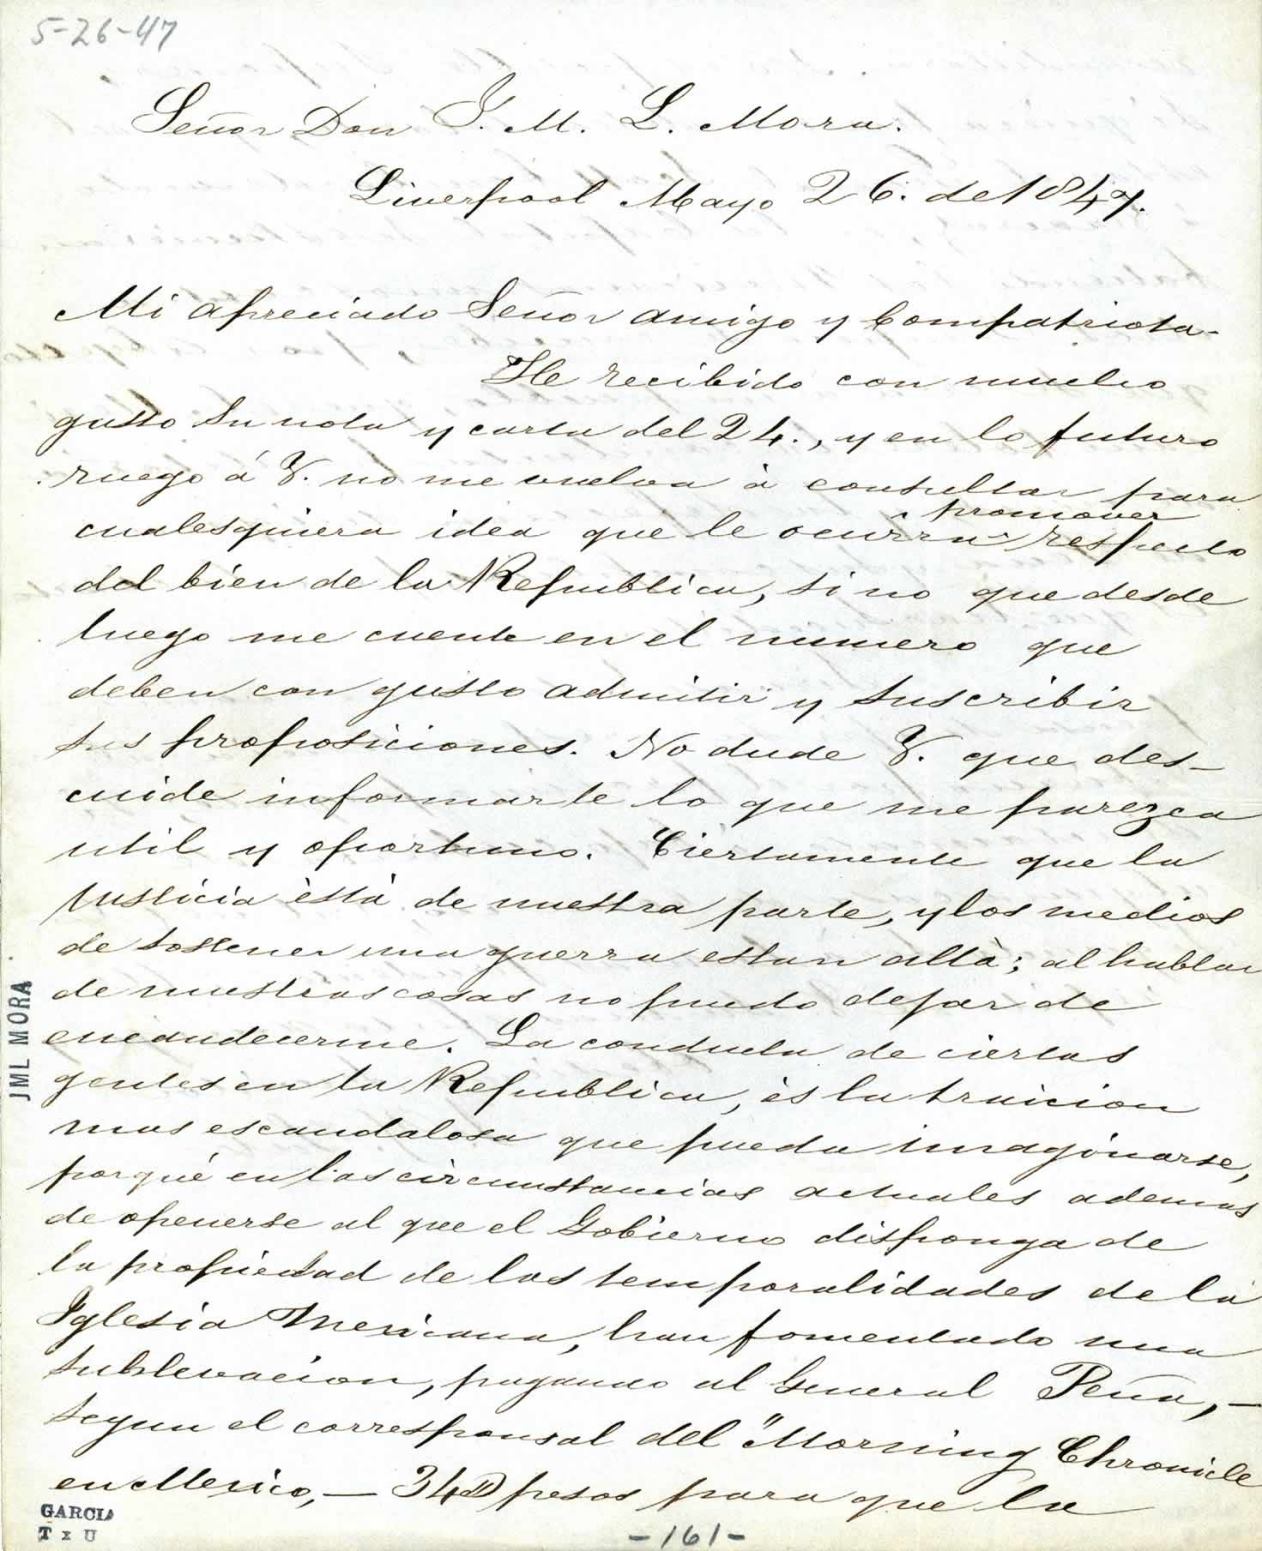 5-26-47
Señor Don J. M. L. Mora.
Liverpool Mayo 26. de 1847.
Mi apreciado Señor amigo y Compatriota-
He recibido con mucho
gusto su nota y carta del 24., y en lo futuro
ruego á V. no me vuelva à consultar para
promover
cualesquiera idea que le ocurra respecto
del bien de la Republica, sino que desde
luego me cuente en el numero que
deben con gusto admitir y suscribir
sus proposiciones. No dude V. que des-
cuide informarle lo que me parezca
util y oportuno. Ciertamente que la
justicia està de nuestra parte, y los medios
de sostener una guerra estan allà; al hablar
de nuestras cosas no puedo dejar de
encandecerme. La conducta de ciertas
gentes en la Republica, ès la traicion
mas escandalosa que pueda imaginarse,
porqué en las circunstancias actuales ademas
de openerse al que el Gobierno disponga de
la propiedad de las temporalidades de la
Iglesia Mexicana, han fomentado una
sublevacion, pagando al General Peña, —
segun el corresponsal del "Morning Chronicle
en Mexico, — 34D pesos para que la
JML MORA
GARCIA
T x U
-161-